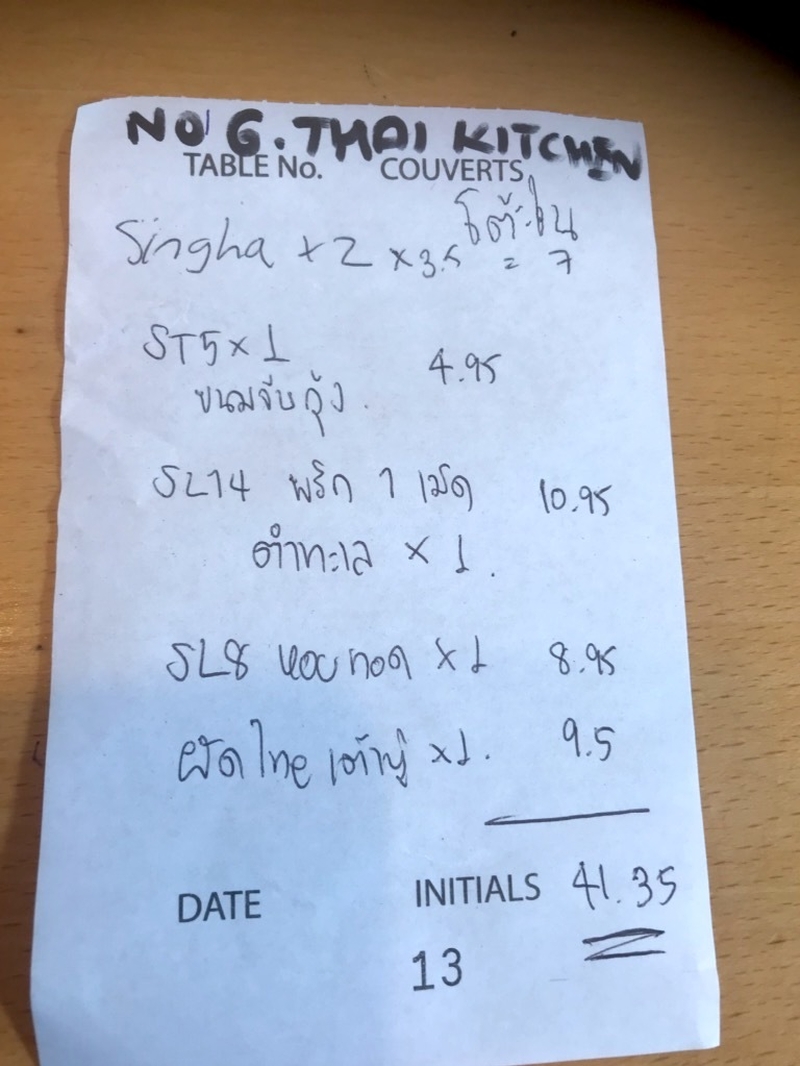 NO 6. THAI KITCHEN
TABLE No. COUVERTS
โต๊ะใน
Singha x 2 x 3.5 = 7
ST5 x 1 4.95
ขนมจีบกุ้ง.
SL14 พริก 1 เม็ด 10.95
ตำทะเล x 1.
SL8 หอยทอด x 1 8.95
ผัดไทย เต้าหู้ x 1. 9.5
DATE INITIALS 41.35
13